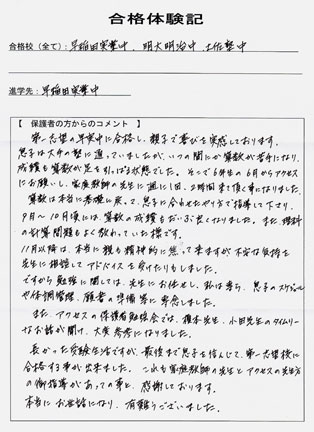 合格体験記
合格校（全て）：早稲田実業中、明大明治中、土佐塾中
進学先：早稲田実業中
【 保護者の方からのコメント 】
第一志望の早実中に合格し、親子で喜びを実感しております。
息子は大手の塾に通っていましたが、いつの間にか算数が苦手になり、
成績も算数が足を引っぱる状態でした。そこで6年生の6月からアクセス
にお願いし、家庭教師の先生に週に1回、2時間来て頂く事になりました。
算数は本当に基礎に戻って、息子に合わせたやり方で指導して下さり、
9月～10月頃には、算数の成績もだいぶ良くなりました。また理科
の計算問題もよく教わっていた様です。
11月以降は、本当に親も精神的に焦って来ますが不安な気持を
先生に相談してアドバイスを受けたりもしました。
ですから勉強に関しては、先生にお任せし、私は専ら、息子のスケジュール
や体調管理、願書の準備等に専念しました。
また、アクセスの保護者勉強会では、榎本先生、小田先生のタイムリー
なお話が聞け、大変参考になりました。
長かった受験生活ですが、最後まで息子を信んじて、第一志望校に
合格する事が出来ました。これも家庭教師の先生とアクセスの先生方
の御指導があっての事と、感謝しております。
本当にお世話になり、有難うございました。